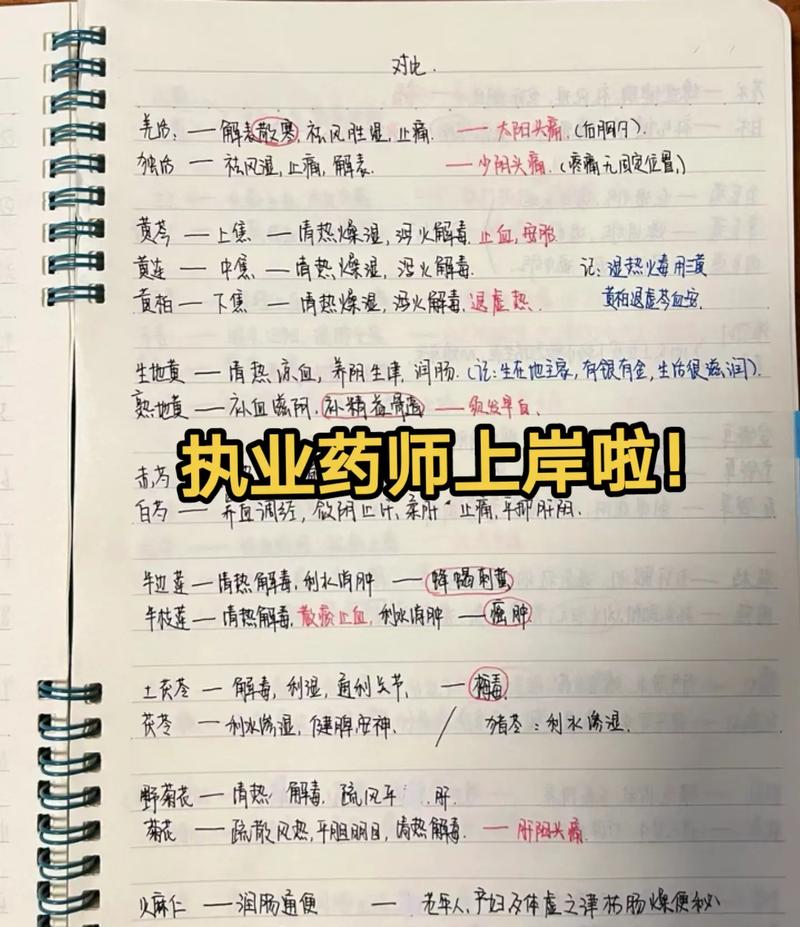 对比.
羌活:—解表散寒,祛风胜湿,止痛.——太阳头痛.(后脑勺).
独活—祛风湿,止痛,解表.——少阴头痛.(疼痛无固定位置)
黄芩—上焦—清热燥湿,泻火解毒.止血,安胎.
黄连—中焦—清热燥湿,泻火解毒.记:湿热火毒用三黄
黄柏—下焦—清热燥湿,泻火解毒,退虚热.黄柏退虚芩血安.
生地黄—清热凉血,养阴生津,润肠.(记:生在地主家,有银有金,生活很滋润).
熟地黄—补血滋阴,补精益骨髓——须发早白.
执业药师上岸啦!
赤芍
白芍—养血调经,敛阴止汗,柔肝止痛,平抑肝阳.
半边莲—清热解毒,利水消肿——蜂蝎刺蛰
半枝莲—清热解毒,散瘀止血,利水消肿—癌肿
土茯苓—解毒,利湿,通利关节,—梅毒.
茯苓—利水渗湿,健脾安神. / 猪苓:利水渗湿.
野菊花—清热 解毒,疏风平 肝.
菊花—疏散风热,平肝明目,清热解毒.——肝阳头痛.
火麻仁—润肠通便——老年人,产妇及体虚之津枯肠燥便秘